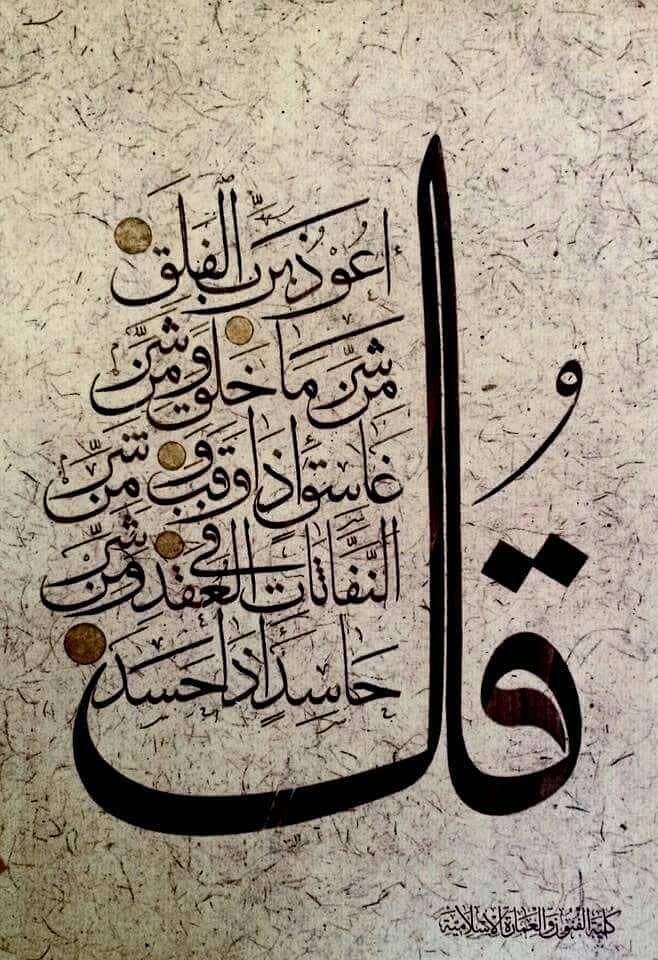 قُل
أعُوْذُ بِرَبِّ الفَلَقِ
مِنْ شَرِّ مَا خَلَقَ وَمِنْ شَرِّ
غَاسِقٍ إِذَا وَقَبَ وَمِنْ شَرِّ
النَّفَّاثَاتِ فِي العُقَدِ وَمِنْ شَرِّ
حَاسِدٍ إِذَا حَسَدَ
كلية الفنون والعمارة الإسلامية